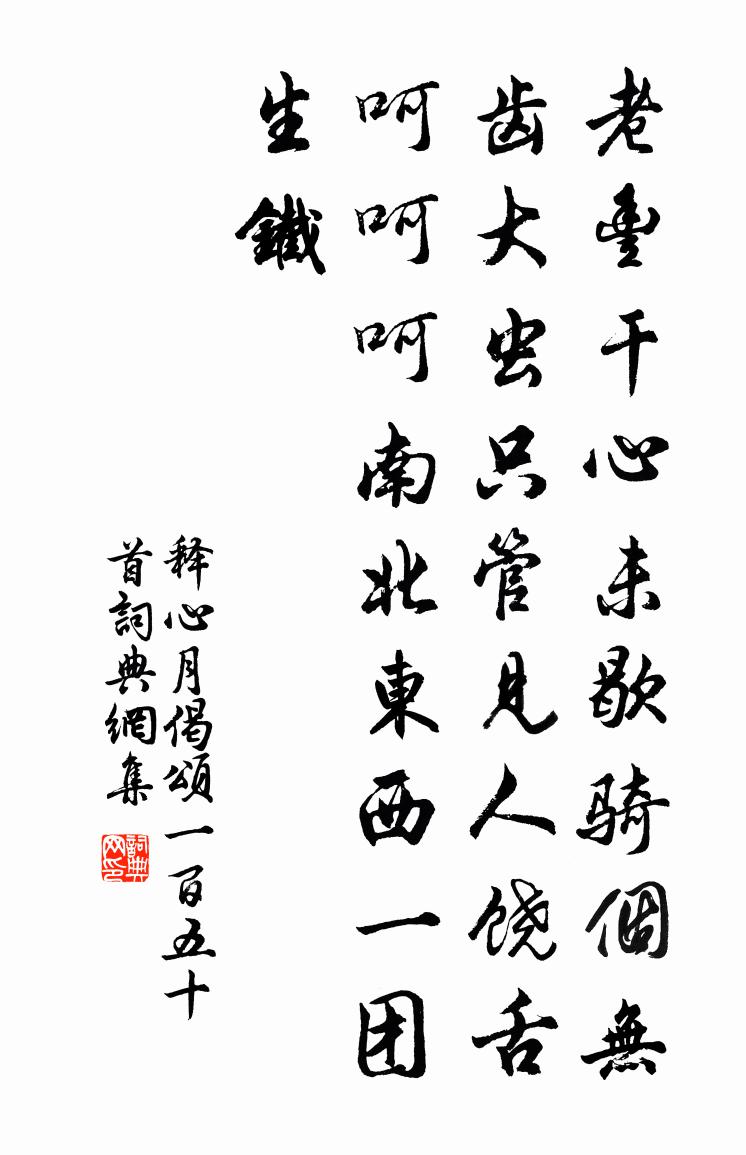 老豐干心未歇騎個無
齿大虫只管見人饶舌
呵呵呵南北東西一团
生鐵
释心月偈頌一百五十
首詞典網集
詞典網印